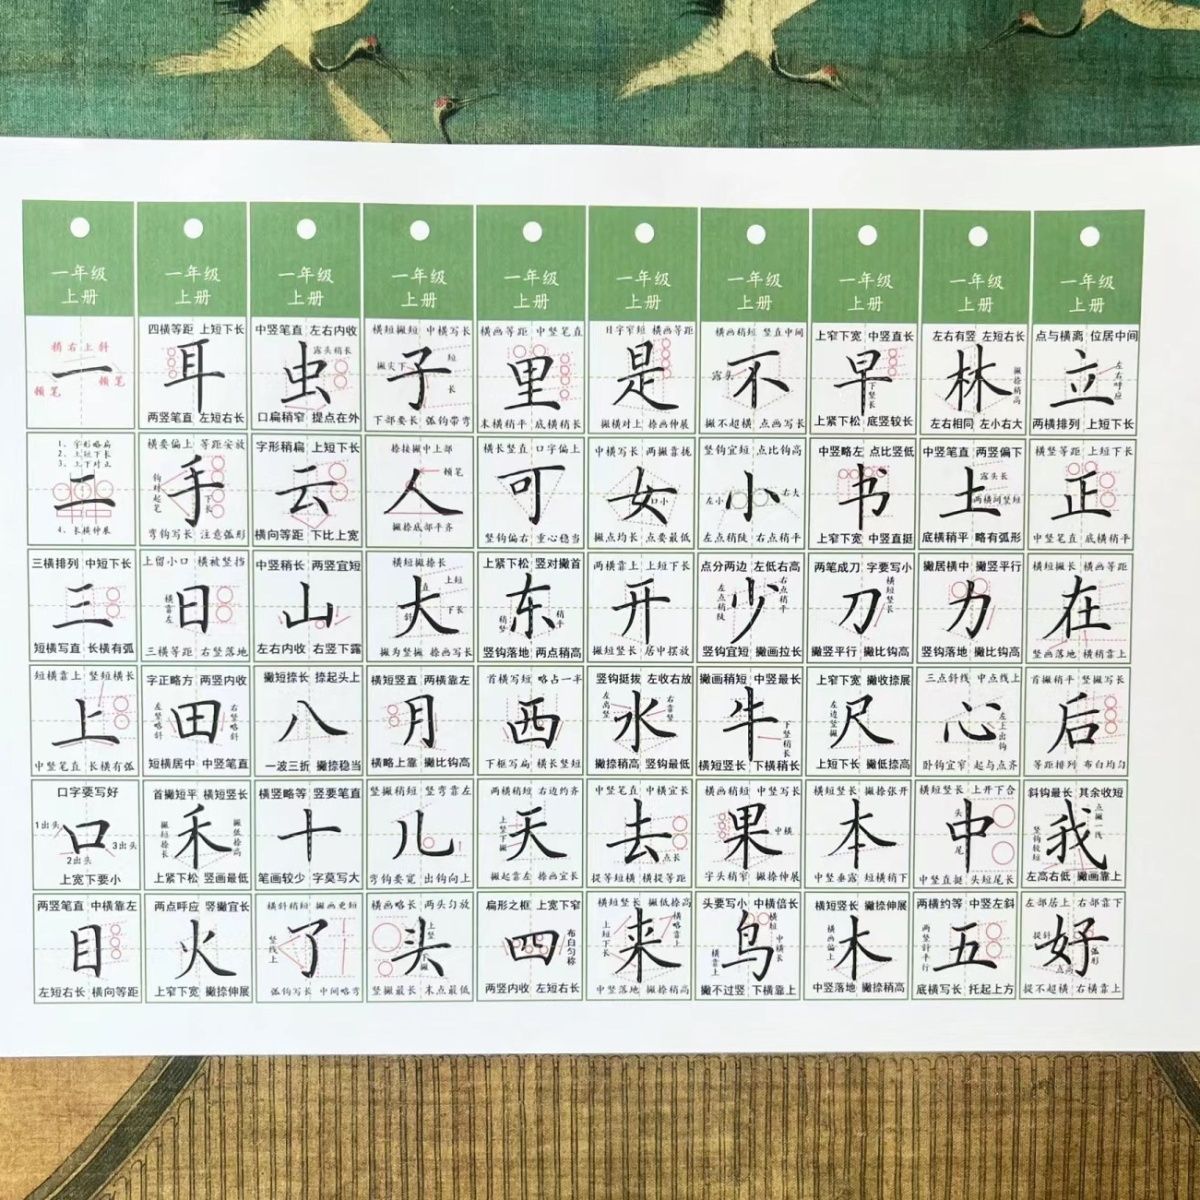 一年级 一年级 一年级 一年级 一年级 一年级 一年级 一年级 一年级 一年级
上册 上册 上册 上册 上册 上册 上册 上册 上册 上册
横右上斜
一
顿笔 顿笔
四横等距 上短下长
耳
两竖笔直 左短右长
中竖笔直 左右内收
露头稍长
虫
口扁稍窄 提点在外
横短撇短 中横写长
撇尖下 短
子
长
下部要长 弧钩带弯
横画等距 中竖笔直
里
末横稍平 底横稍长
日字窄短 横画等距
是
撇横对上 捺画伸展
横画稍短 竖直中间
露头
不
撇不超横 点画写长
上窄下宽 中竖直长
早
下竖长
上紧下松 底竖较长
左右有竖 左短右长
林
撇捺稍高
左右相同 左小右大
点与横离 位居中间
立
左右呼应
两横排列 上短下长
1、字形略扁
2、上短下长
3、上下对正
二
4、长横伸展
横要偏上 等距安放
钩对起笔
手
下长
弯钩写长 注意弧形
字形稍扁 上短下长
云
横向等距 下比上宽
捺接撇中上部
顿笔
人
撇捺底部平齐
横长竖直 口字偏上
可
竖钩偏右 重心稳当
中横写长 两撇靠拢
女
口小
撇点均长 点要最低
竖钩宜短 点比钩高
左小 右大
小
左点稍陡 右点稍平
中竖略左 点比竖低
书
上窄下宽 中竖直挺
中竖笔直 两竖偏下
露头长
土
两横间竖短
底横稍平 略有弧形
横竖等距 上短下长
正
中竖笔直 底横稍平
三横排列 中短下长
三
短横写直 长横有弧
上留小口 横被竖挡
横靠左
日
三横等距 右竖落地
中竖稍长 两竖宜短
山
左右内收 右竖下露
横短撇捺长
上短
直
大
斜
下长
撇为竖撇 捺画写长
上紧下松 竖对撇首
东
稍竖
稍平
竖钩落地 两点稍高
两横靠上 上短下长
开
撇短竖长 居中摆放
点分两边 左低右高
左点稍陡
少
右点稍平
竖钩宜短 撇画拉长
两笔成刀 字要写小
刀
横短竖长
撇竖平行 撇比钩高
撇居横中 撇竖平行
力
竖钩落地 撇比钩高
横短撇长 横画等距
在
竖画落地 横稍靠上
短横靠上 竖短横长
上
中竖笔直 长横有弧
字正略方 两竖内收
左竖略斜
田
右竖略斜
短横居中 中竖笔直
撇短捺长 捺起头上
八
一波三折 撇捺稳当
横短竖直 两横靠左
月
横略上靠 撇比钩高
首横写短 略占一半
西
下框写扁 横长竖短
竖钩挺拔 左收右放
左离竖
水
右靠竖
撇捺稍高 竖钩最低
撇画稍短 中竖最长
牛
下竖稍长
横短竖长 下横稍长
上窄下宽 撇收捺展
左边竖撇
尺
上短下长 撇低捺高
三点斜线 中点线上
心
左上出钩
卧钩宜窄 起与点齐
首撇稍平 竖撇写长
后
等距排列 布白均匀
口字要写好
1出头
口
3出头
2出头
上宽下要小
首撇短平 横短竖长
撇短捺长
禾
撇低捺高
上紧下松 竖画最低
横竖略等 竖要笔直
十
笔画较少 字莫写大
竖撇稍短 竖弯靠左
儿
弯钩要宽 出钩向上
两横稍短 右边约齐
上竖下撇
天
撇起靠左 捺画宜长
中竖笔直 中横宜长
去
点长
提等短横 横提等距
横画稍短 中竖写长
中横
果
字头稍窄 撇捺伸展
横短竖长 撇捺张开
本
中竖垂露 短横稍下
横短竖长 上开下合
头
中
尾
中竖直挺 头短尾长
斜钩最长 其余收短
点撇一线
竖钩较短
我
左高右低 撇画靠上
两竖笔直 中横靠左
目
左短右长 横向等距
两点呼应 竖撇宜长
火
上窄下宽 撇捺伸展
横斜稍短 撇画更短
竖线上
了
弧钩写长 中间略弯
横画略长 两头匀放
上竖
头
下撇
竖撇最长 末点最低
扁形之框 上宽下窄
四
布白匀称
两竖内收 左短右长
横短竖长 撇低捺高
上短下长
来
横略靠上
中竖落地 撇捺稍高
头要写小 中横倍长
横短
鸟
中横长
横靠上
撇不过竖 下横靠上
横短竖长 撇捺伸展
横画偏上
木
中竖落地 撇捺稍高
两横约等 中竖左斜
两竖斜平行
五
底横写长 托起上方
左部居上 右部靠下
提斜
好
弧形
点高
提不超横 右横靠上